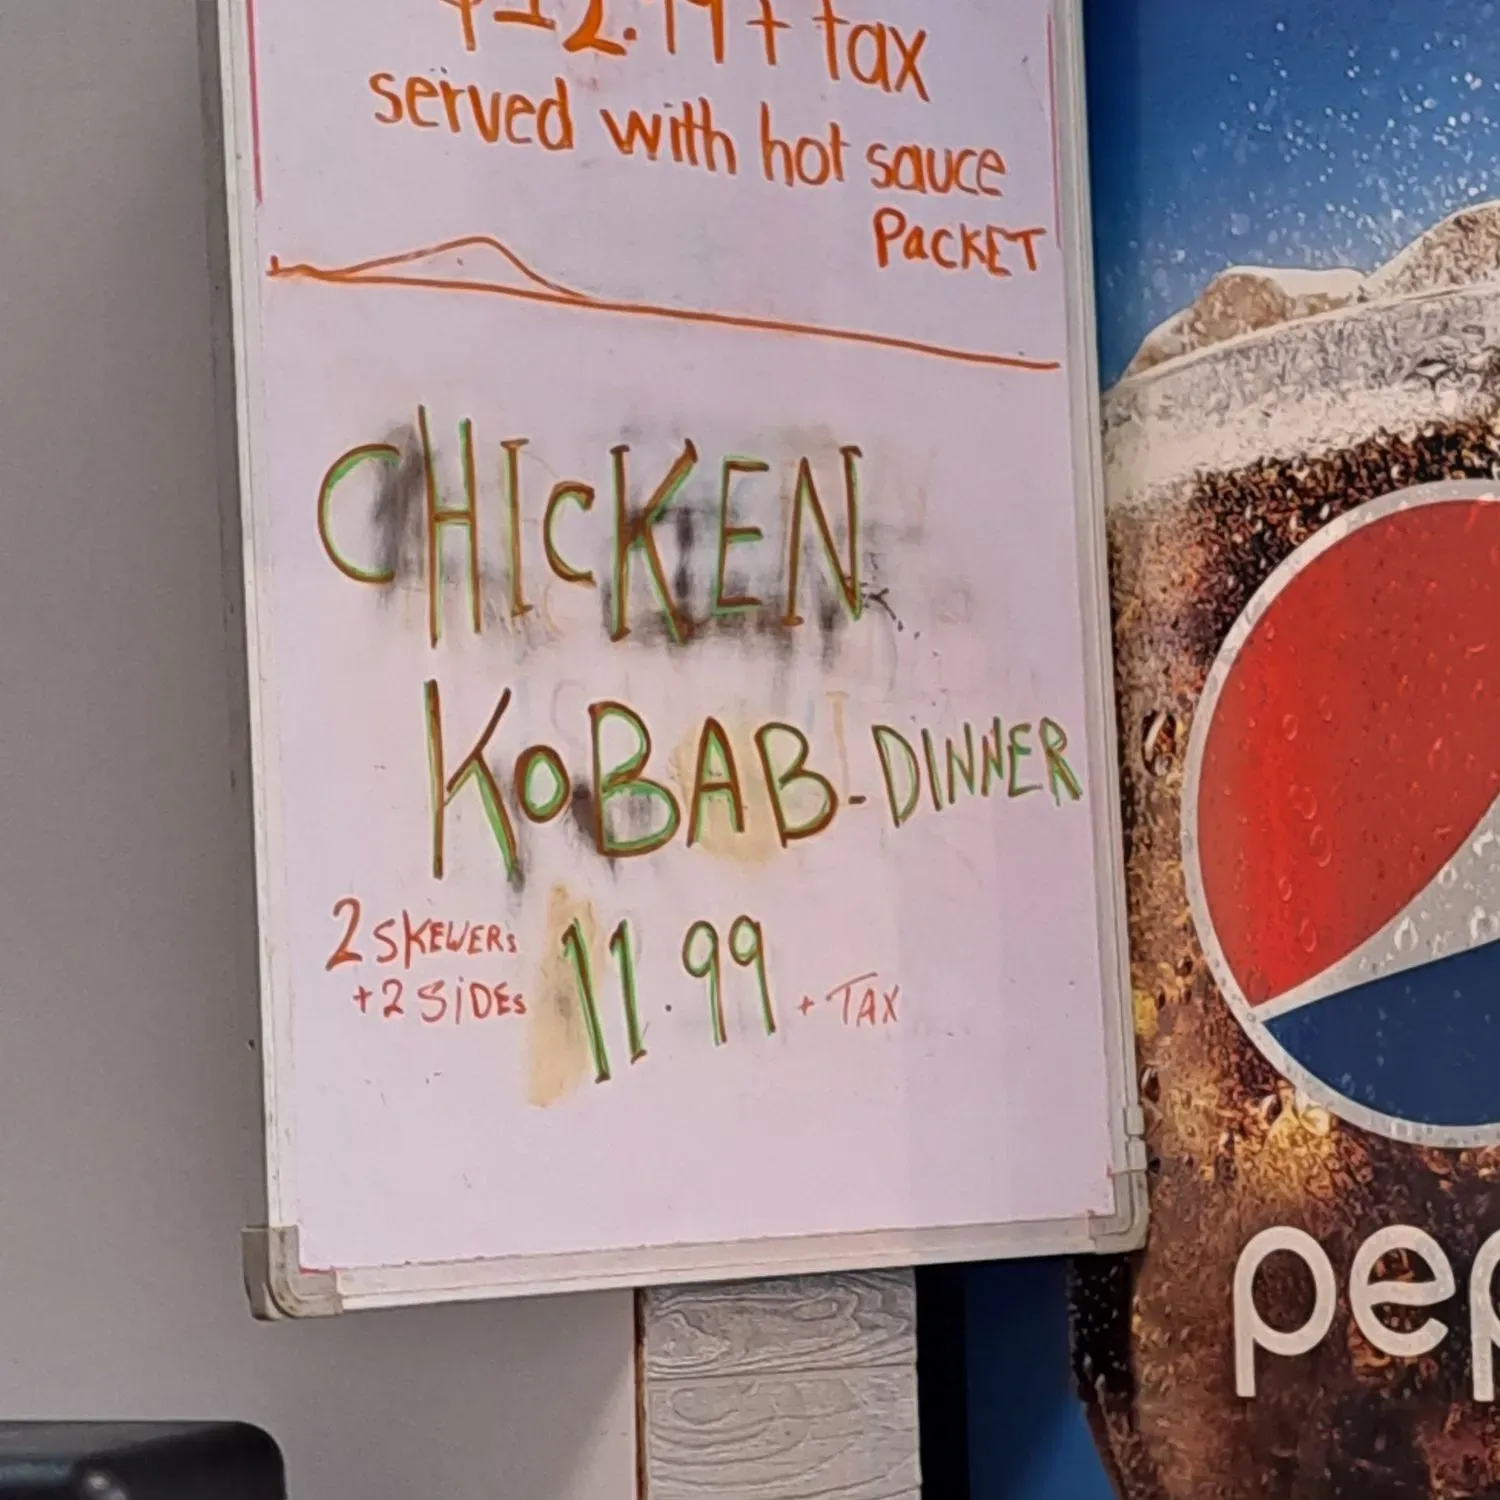 $12.99 + tax
served with hot sauce
PACKET
CHICKEN
KOBAB-DINNER
2 SKEWERS
+2 SIDES
11.99 + TAX
pep